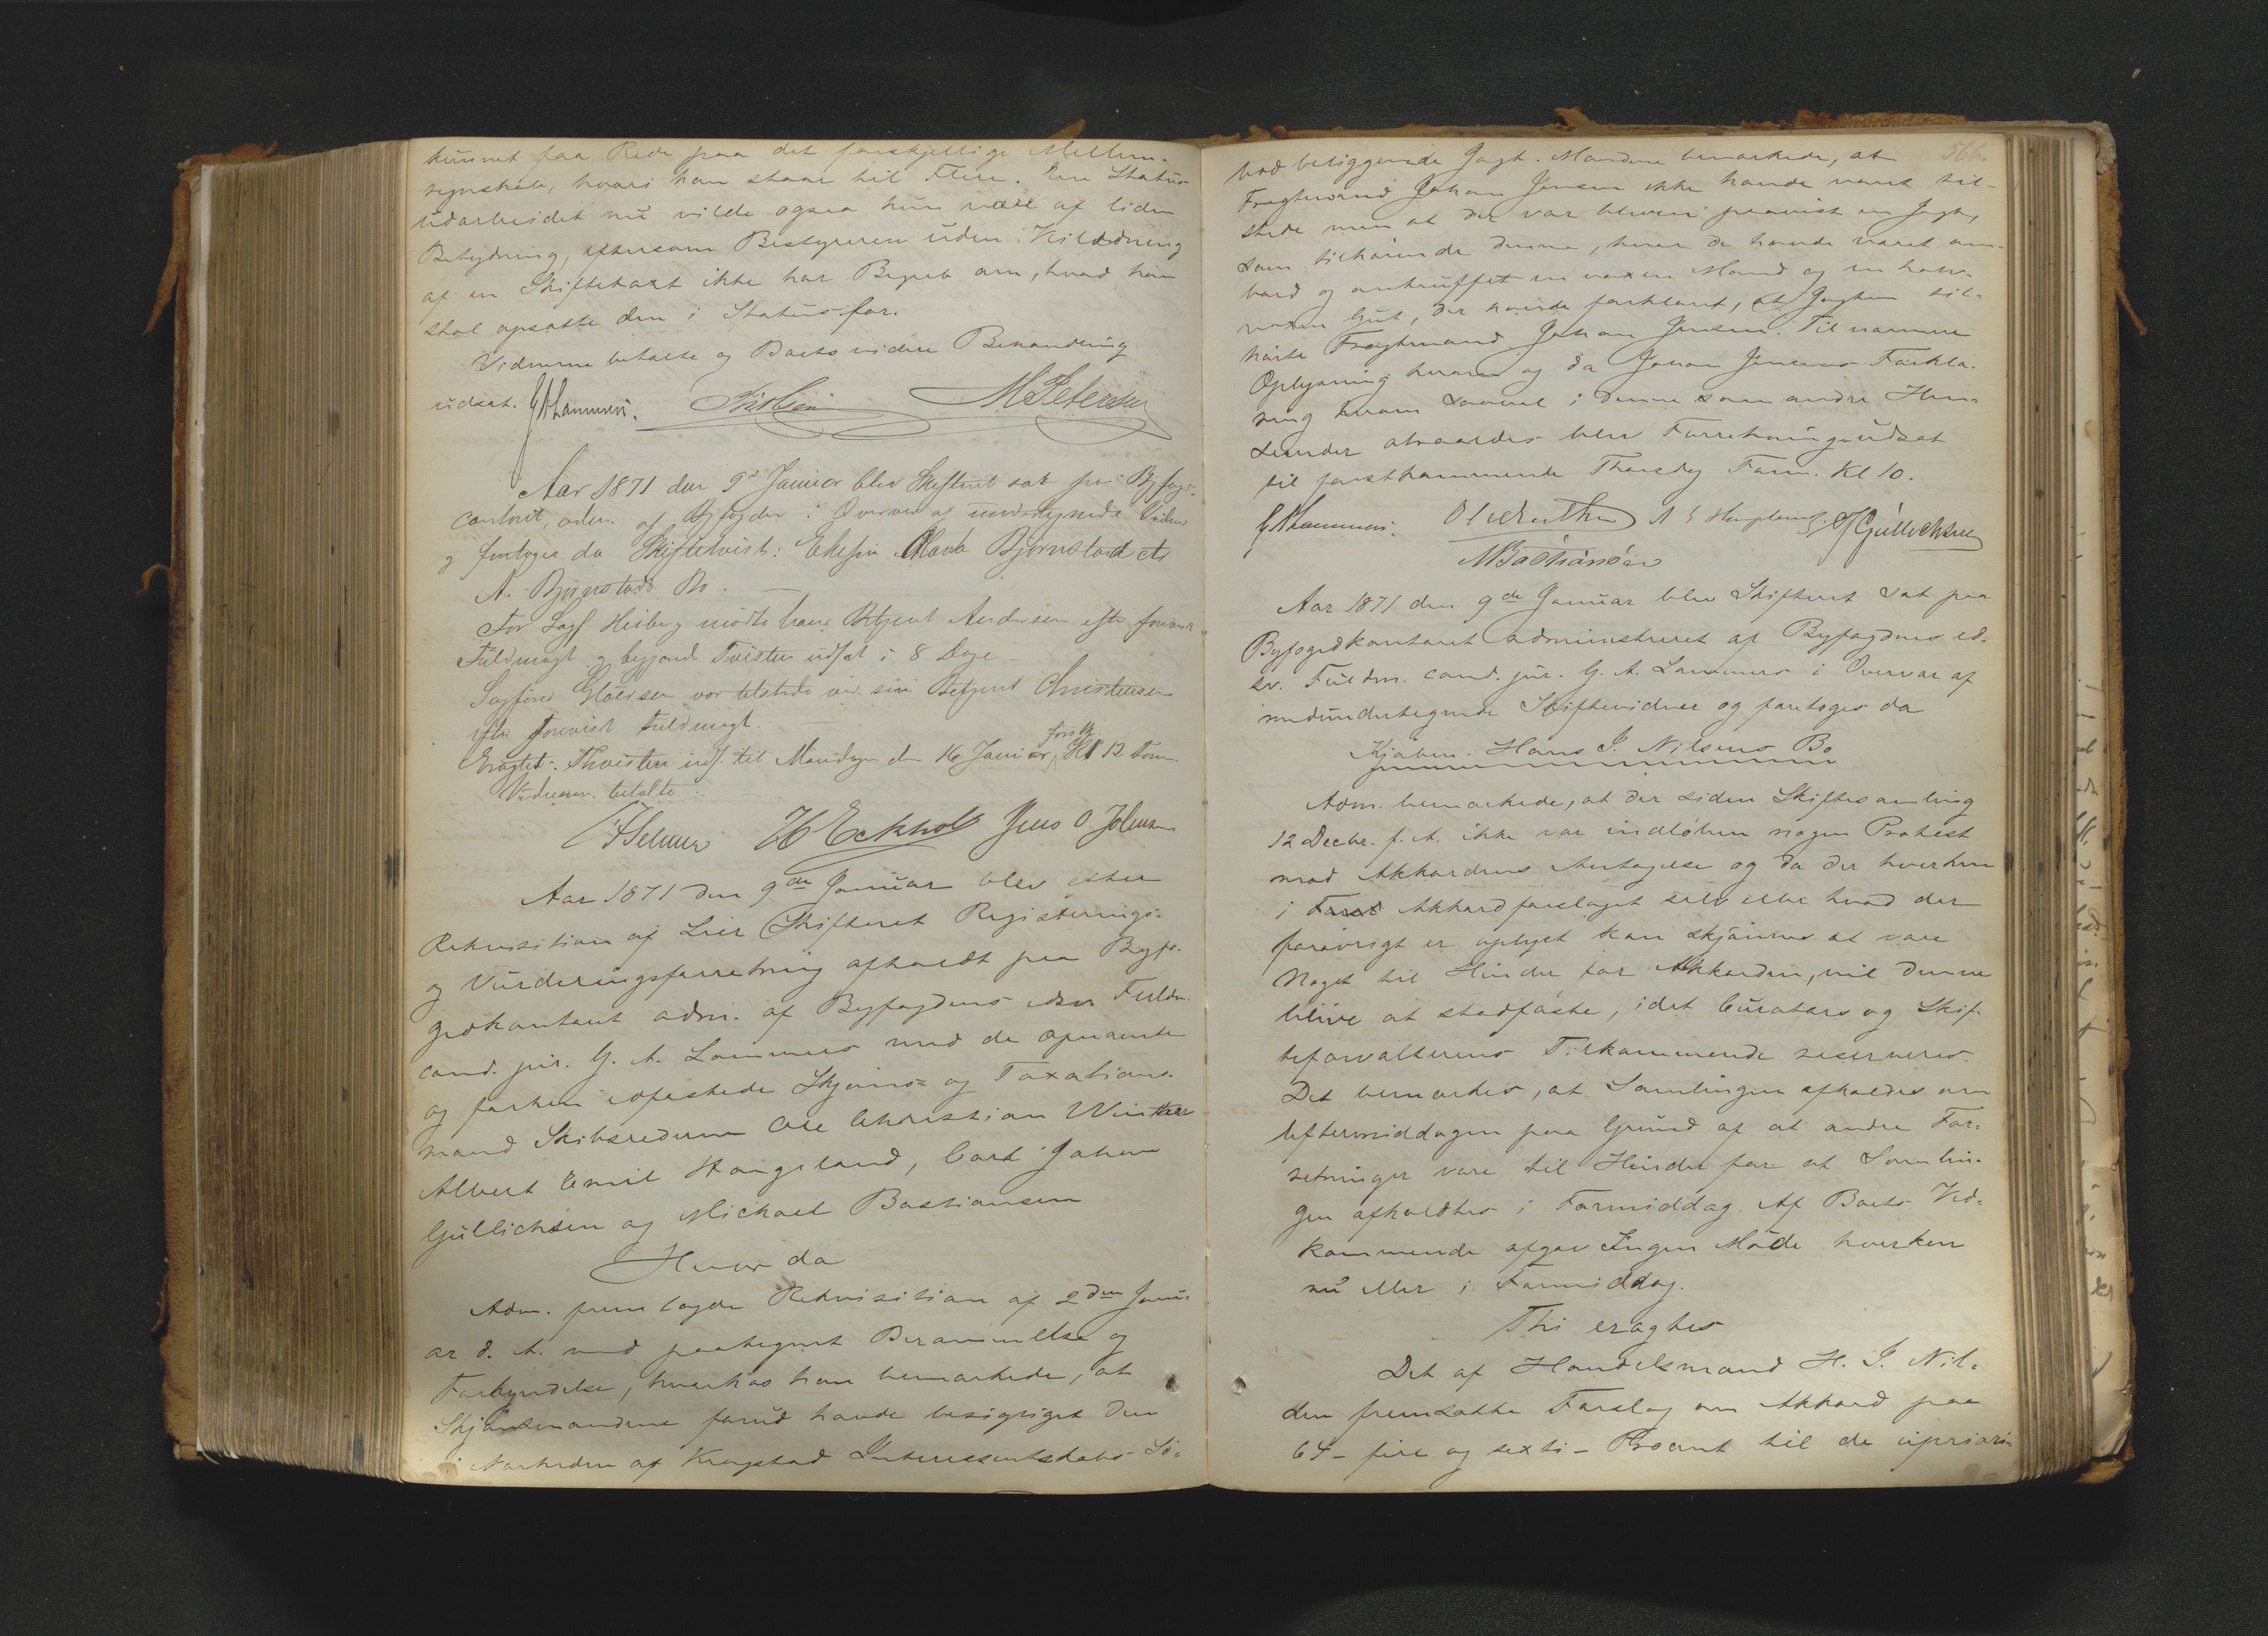 kunnet faa Rede paa det forskjellige Mellem-
regnskab, hvori han staar til Flere. En Status
udarbeidet nu vilde ogsaa kun være af liden
Betydning, eftersom Bestyreren uden Veiledning
af en Skifteret ikke har Begreb om, hvad han
skal opsætte den i Status for.
Vidnerne betalte og Boets videre Behandling
udsat. G A Lammers. M Petersen
Aar 1871 den 9de Januar blev Skifteret sat paa Byfogd-
contoret, adm. af Byfogden i Overvær af undertegnede Vidner
og foretoges da Skiftetvist: Enkefru Olava Bjørnstad ctr
A. Bjørnstads Bo.
For Sagf. Heiberg mødte hans Betjent Andersen efter forevist
Fuldmagt og begjærede Tvisten udsat i 8 Dage
Sagfører Gløersen var tilstede ved sin Betjent Christensen
efter forevist Fuldmagt.
Eragtet: Tvisten uds. til Mandagen den 16 Januar førstk Kl 12 Form.
Vidnerne betalte
H Eckholt Jens O Johnsen
Aar 1871 den 9de Januar blev efter
Rekvisition af Lier Skifteret Registerings-
og Vurderingsforretning afholdt paa Byfo-
gedkontoret adm. af Byfogdens edsv Fuldm.
cand. jur. G. A. Lammers med de opnævnte
og forhen edfæstede Skjøns- og Taxations-
mænd Skibsrederne Ole Christian Winther
Albert Emil Haugeland, Carl Johan
Gullichsen og Michael Bastiansen
Hvor da
Adm. fremlagde Rekvisition af 2den Janu-
ar d. A. med paategnet Berammelse og
Forkyndelse, hvorhos han bemærkede, at
Skjønsmændene forud havde besigtiget den
i Nærheden af Krogstad Interessentskabs Sø-
566.
bod beliggende Jagt. Mændene bemærkede, at
Fragtmand Johan Jensen ikke havde været til-
stede men at der var bleven paavist en Jagt,
som tilhørende denne, hvor de havde været om-
bord og antruffet en voxen Mand og en halv-
voxen Gut, der havde forklaret, at Jagten til-
hørte Fragtmand Johan Jensen. Til nærmere
Oplysning herom og da Johan Jensens Forkla-
ring herom saavel i denne som andre Hen-
seender attraaedes blev Forretningen udsat
til førstkommende Thorsdag Form. Kl 10.
G A Lammers. O C Winther A E Haugeland. C J Gullichsen
M Bastiansen
Aar 1871 den 9de Januar blev Skifteret sat paa
Byfogedkontoret administreret af Byfogdens ed-
sv. Fuldm. cand. jur. G. A. Lammers i Overvær af
medundertegnede Skiftevidner og foretoges da
Kjøbm. Hans J. Nilsens Bo
Adm. bemærkede, at der siden Skiftesamling
12 Decbr. f. A. ikke var indløben nogen Protest
mod Akkordens Antagelse og da der hverken
i Akkordforslaget selv eller hvad der
forøvrigt er oplyst kan skjønnes at være
Noget til Hinder for Akkorden, vil denne
blive at stadfæste, idet Curators og Skif-
teforvalterens Tilkommende reserveres.
Det bemærkes, at Samlingen afholdes om
Eftermiddagen paa Grund af at andre For-
retninger vare til Hinder for at Samlin-
gen afholdtes i Formiddag. Af Boets Ved-
kommende afgav Ingen Møde hverken
nu eller i Formiddag.
Thi eragtes
Det af Handelsmand H. J. Nil-
sen fremsatte Forslag om Akkord paa
64 - fire og sexti - Procent til de uprior